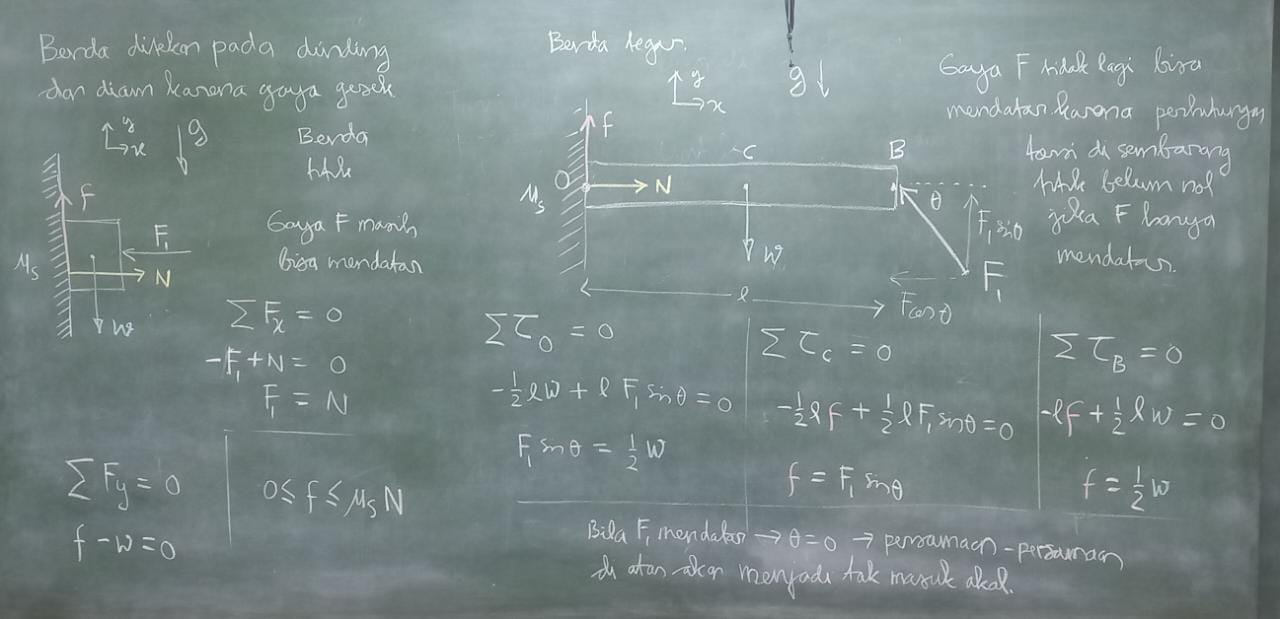 Benda ditekan pada dinding
dan diam karena gaya gesek
y
x
g
Benda
titik
f
F₁
N
μₛ
w
Gaya F masih
bisa mendatar
∑Fₓ = 0
-F₁+N = 0
F₁ = N
∑Fy = 0
f - w = 0
0 ≤ f ≤ μₛ N
Benda tegar.
y
x
g
f
O
N
μₛ
C
B
w
θ
F₁ sinθ
F₁
F cosθ
l
Gaya F tidak lagi bisa
mendatar karena perhitungan
torsi di sembarang
titik belum nol
jika F hanya
mendatar.
∑τ_O = 0
-½lw + l F₁ sinθ = 0
F₁ sinθ = ½ w
∑τ_C = 0
-½lf + ½lF₁ sinθ = 0
f = F₁ sinθ
∑τ_B = 0
-lf + ½lw = 0
f = ½w
Bila F₁ mendatar → θ=0 → persamaan-persamaan
di atas akan menjadi tak masuk akal.